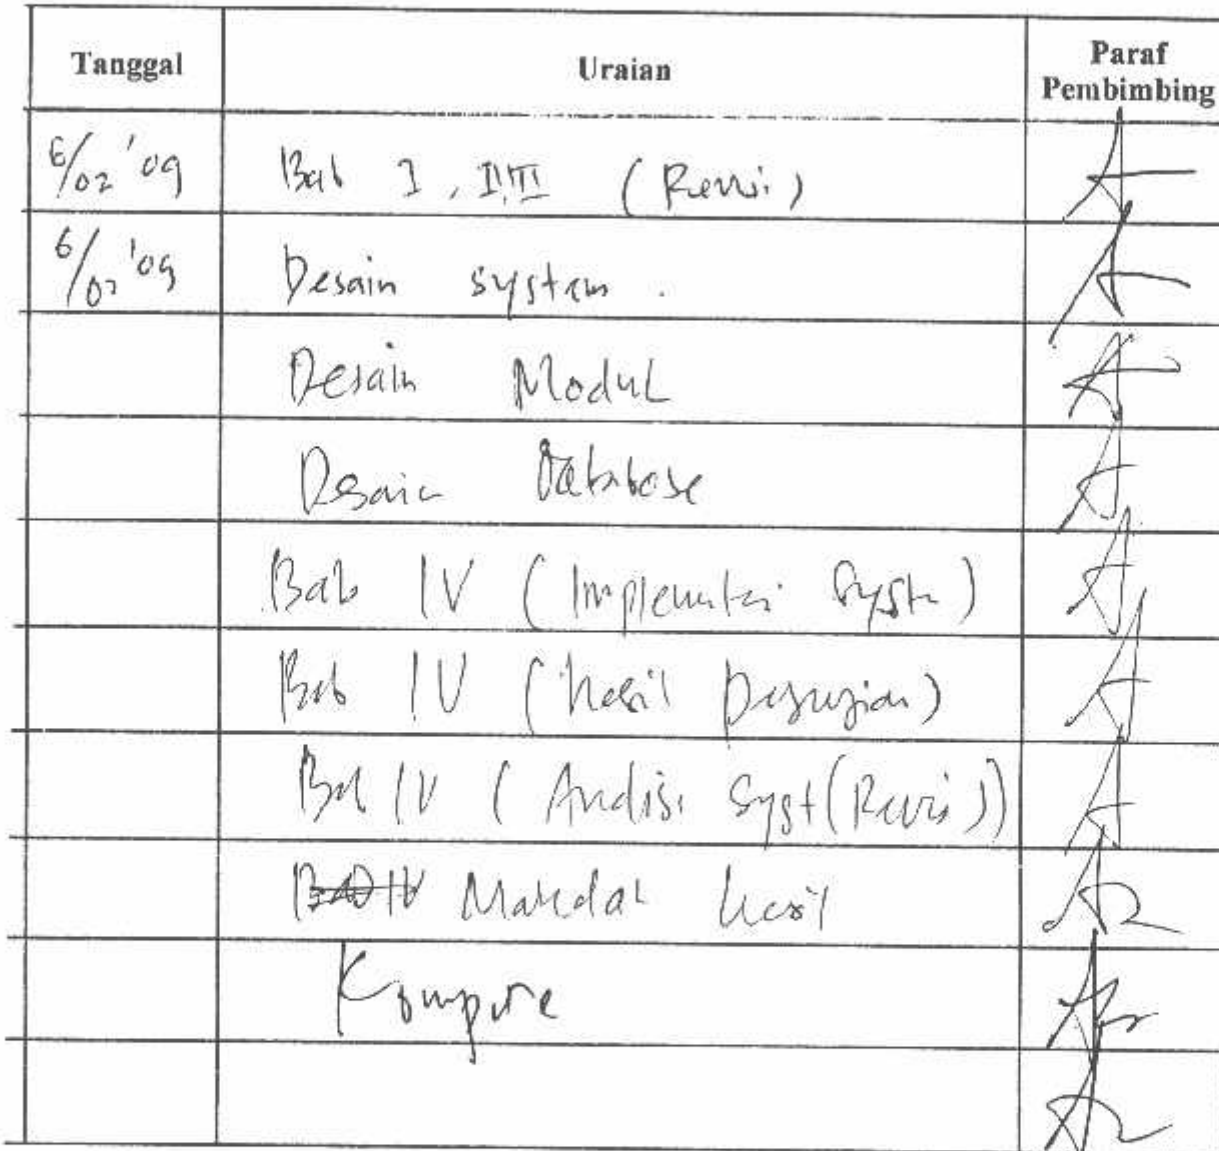 Tanggal Uraian Paraf Pembimbing
6/02 '09 Bab I, II, III (Revisi)
6/02 '09 Desain system.
Desain Modul
Desain Database
Bab IV (Implementasi Syst)
Bab IV (Hasil Pengujian)
Bab IV (Analisi Syst (Revisi))
Makalah Hasil
Kompre